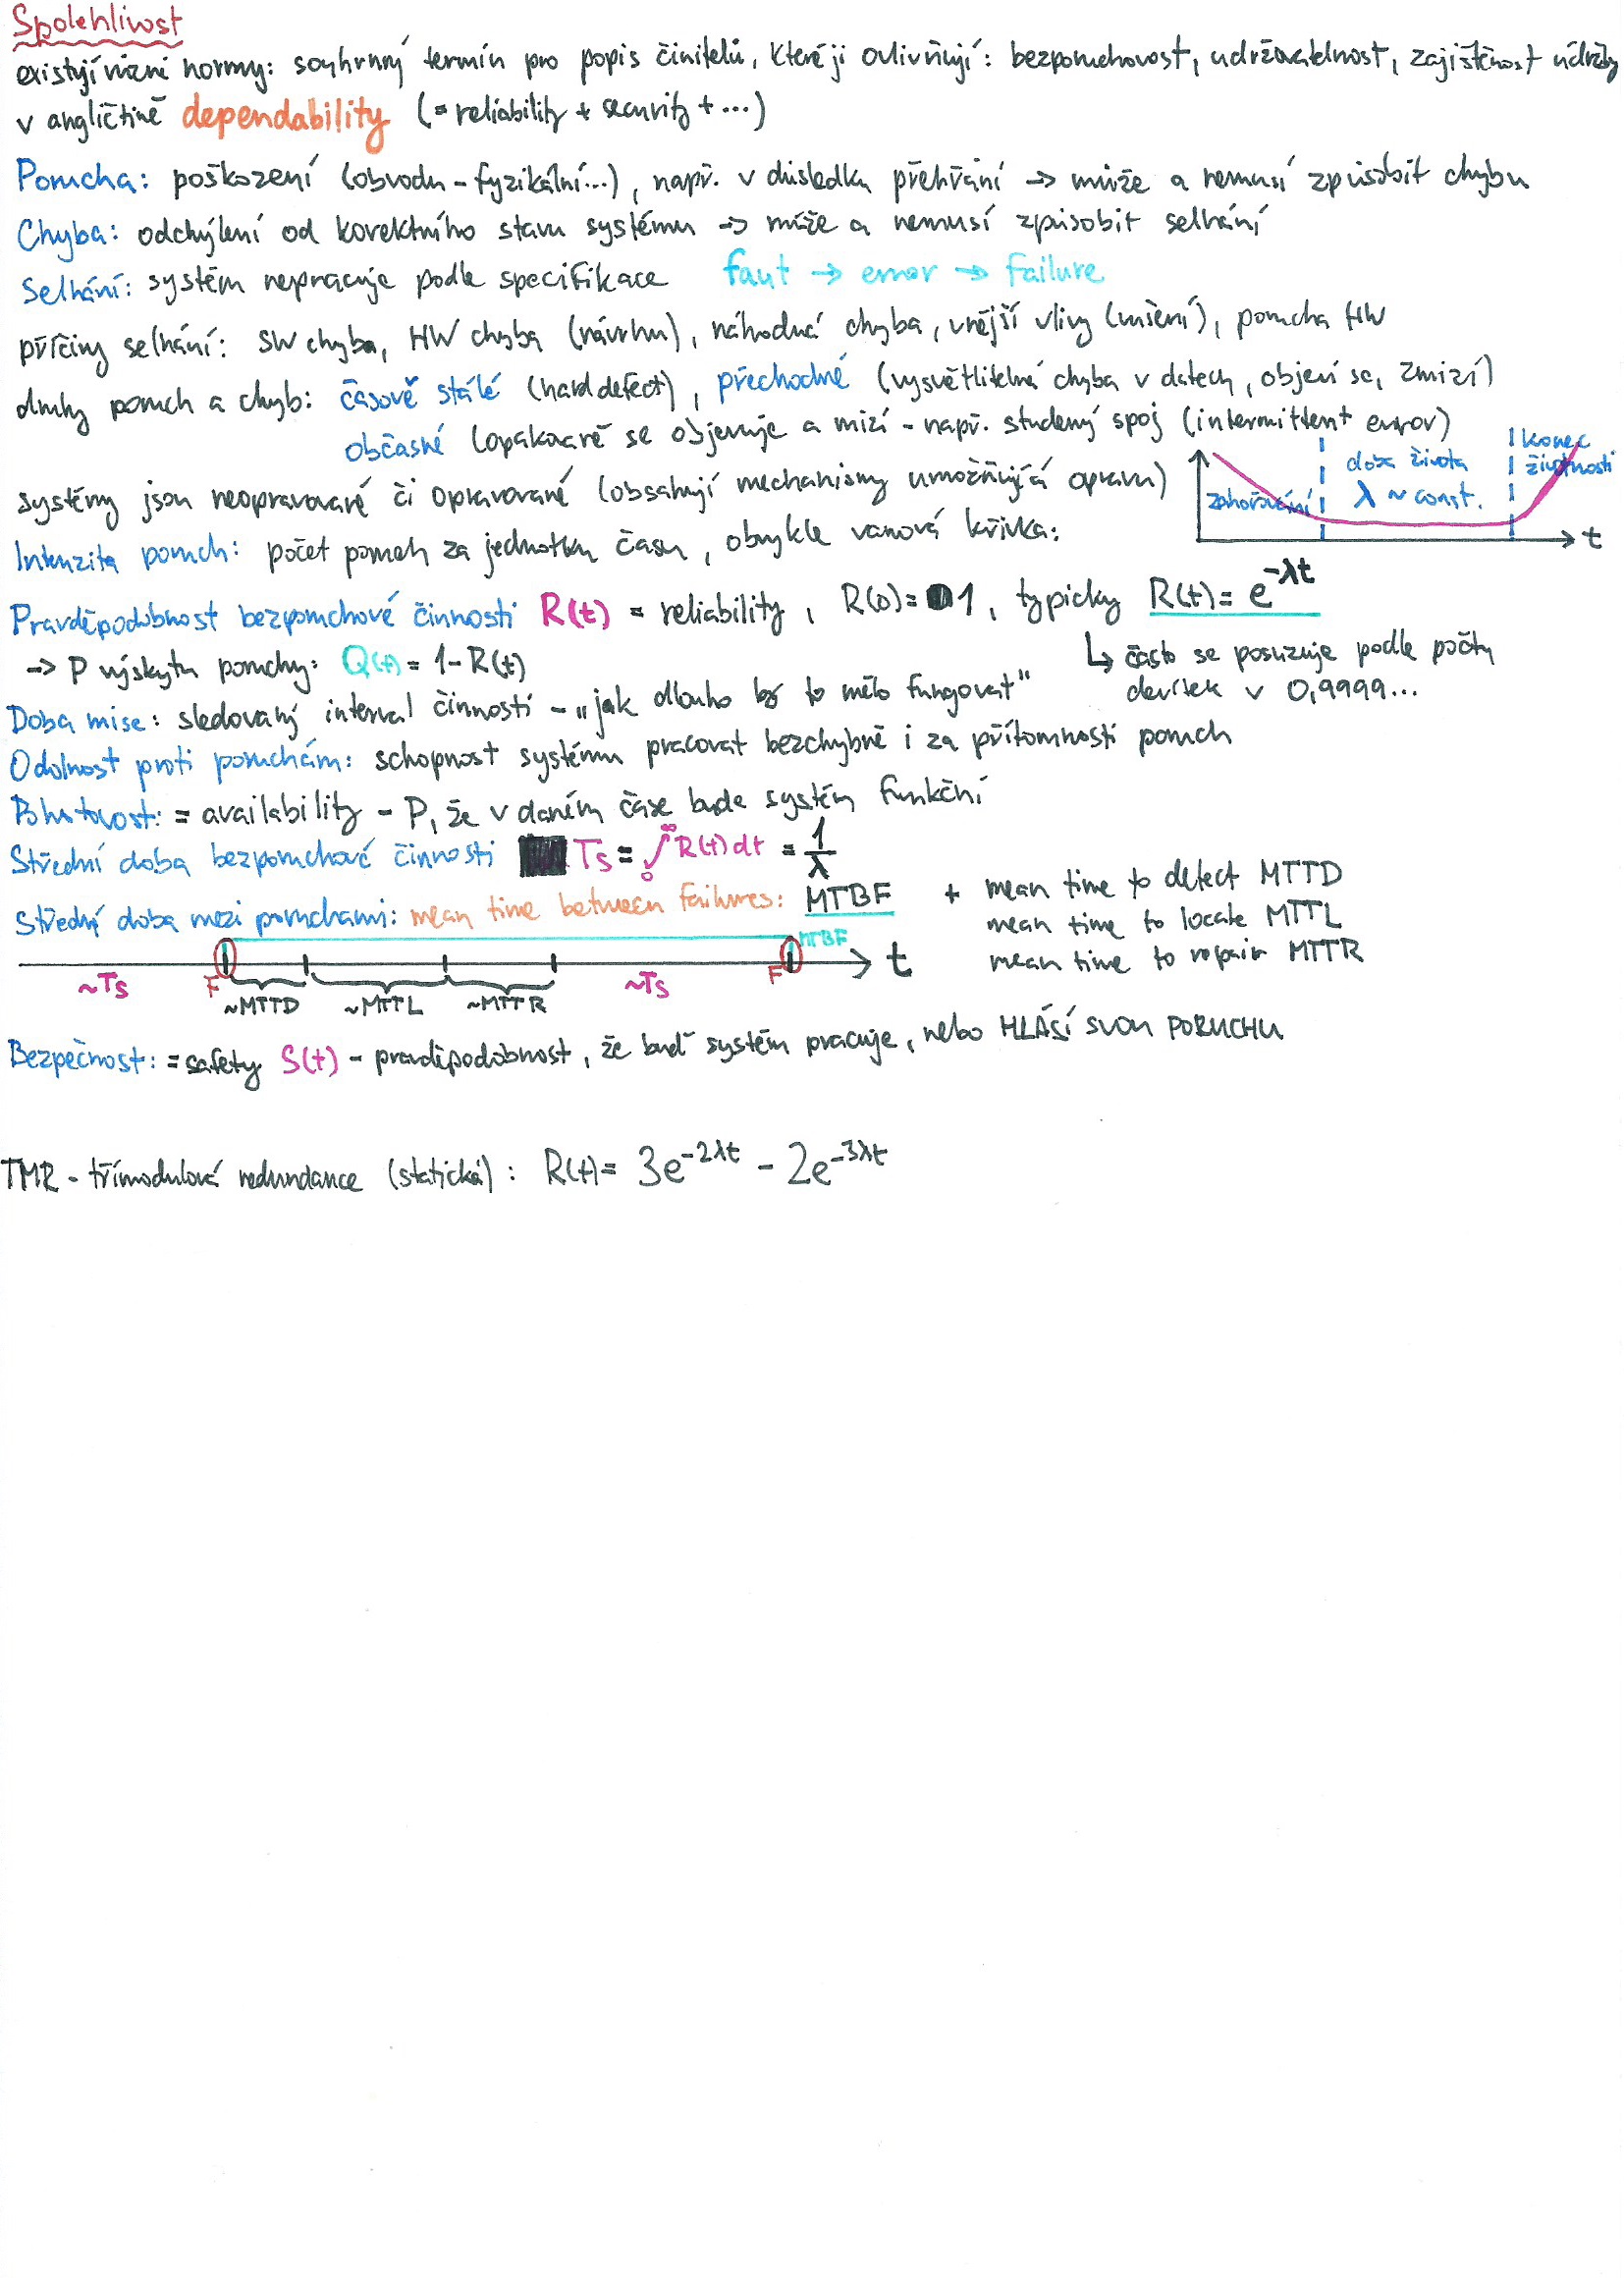 Spolehlivost
existují různé normy: souhrnný termín pro popis činitelů, které ji ovlivňují: bezporuchovost, udržovatelnost, zajištěnost údržby
v angličtině dependability (= reliability + security + ...)
Porucha: poškození (obvodu - fyzikální...), např. v důsledku přehřání -> může a nemusí způsobit chybu
Chyba: odchýlení od korektního stavu systému -> může a nemusí způsobit selhání
Selhání: systém nepracuje podle specifikace faut -> error -> failure
příčiny selhání: SW chyba, HW chyba (návrhu), náhodná chyba, vnější vlivy (rušení), porucha HW
druhy poruch a chyb: časově stálé (hard defect), přechodné (vysvětlitelná chyba v datech, objeví se, zmizí)
občasné (opakovaně se objevuje a mizí - např. studený spoj (intermittent error)
systémy jsou neopravované či opravované (obsahují mechanismy umožňující opravu)
Intenzita poruch: počet poruch za jednotku času, obvykle vanová křivka:
zahořování
doba života
λ ~ const.
konec
životnosti
t
Pravděpodobnost bezporuchové činnosti R(t) = reliability, R(0)= 1, typicky R(t) = e^-λt
-> P výskytu poruchy: Q(t) = 1-R(t)
↳ často se posuzuje podle počtu
devítek v 0,9999...
Doba mise: sledovaný interval činnosti - „jak dlouho by to mělo fungovat"
Odolnost proti poruchám: schopnost systému pracovat bezchybně i za přítomnosti poruch
Pohotovost: = availability - P, že v daném čase bude systém funkční
Střední doba bezporuchové činnosti Ts = ∫₀^∞ R(t) dt = 1/λ
Střední doba mezi poruchami: mean time between failures: MTBF
+ mean time to detect MTTD
mean time to locate MTTL
mean time to repair MTTR
MTBF
t
~Ts F ~MTTD ~MTTL ~MTTR ~Ts F
Bezpečnost: = safety S(t) - pravděpodobnost, že buď systém pracuje, nebo HLÁSÍ SVOU PORUCHU
TMR - třímodulová redundance (statická): R(t) = 3e^-2λt - 2e^-3λt